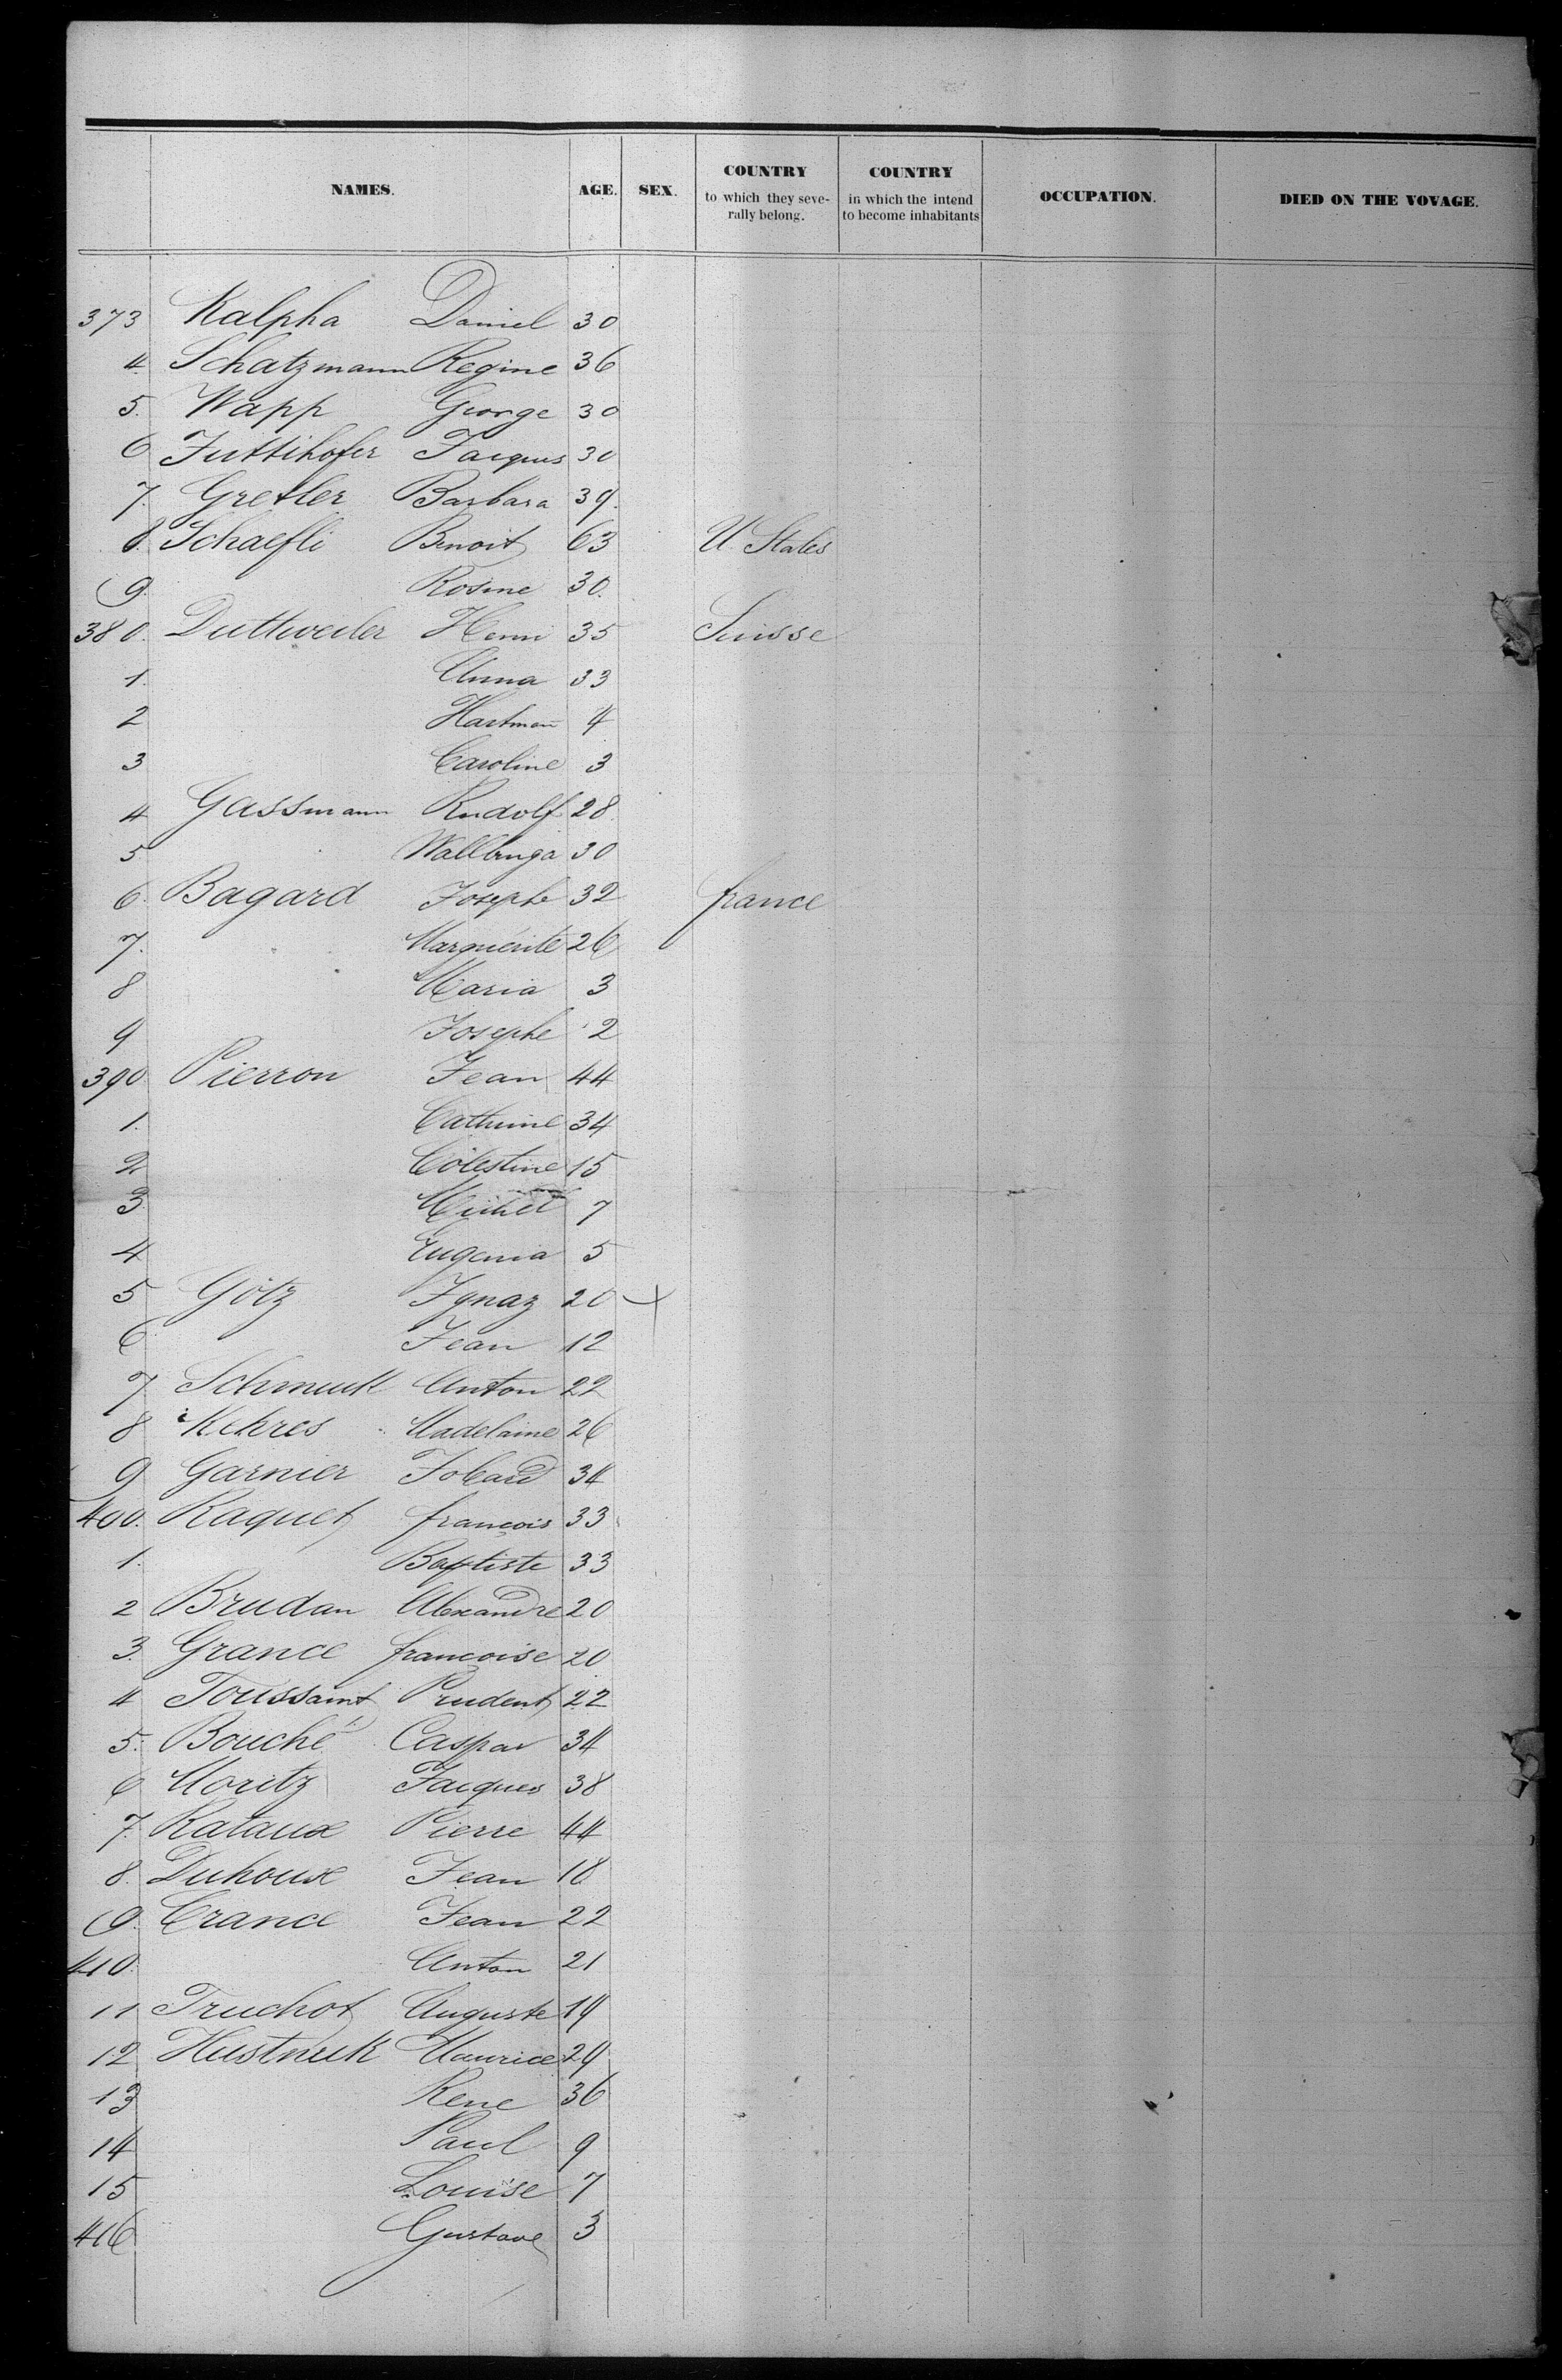 NAMES. AGE. SEX. COUNTRY to which they seve-rally belong. COUNTRY in which the intend to become inhabitants OCCUPATION. DIED ON THE VOVAGE.
373 Kalpha Daniel 30
4. Schatzmann Regine 36
5. Wapp George 30
6 Juttihofer Jacques 30
7. Gretler Barbara 39.
8. Schaefli Benoit 63 U. States
9. Rosine 30.
380. Duttweiler Henri 35 Suisse
1. Anna 33
2 Hartman 4
3 Caroline 3
4 Gassmann Rudolf 28.
5 Wallbruga 30
6. Bagard Josephe 32 france
7. Marguérite 26
8 Maria 3
9 Josephe 2
390 Pierron Jean 44
1. Cathrine 34
2 Cölestine 15
3 Michel 7
4 Eugenia 5
5 Götz Ignaz 20 +
6 Jean 12
7 Schmuck Anton 22
8 Kehres Madelaine 26
9 Garnier 34
400. Raquet francois 33
1. Baptiste 33
2 Brudan Alexandre 20
3. Grance françoise 20
4 Toussaint Prudent 22
5. Bouché Caspar 34
6 Moritz Jacques 38
7. Rataux Pierre 44
8. Duhoux Jean 18
9. Crance Jean 22
410. Anton 21
11 Truchot Auguste 19
12 Maurice 29
13 Rene 36
14 Paul 9
15 Louise 7
416 Gustave 3